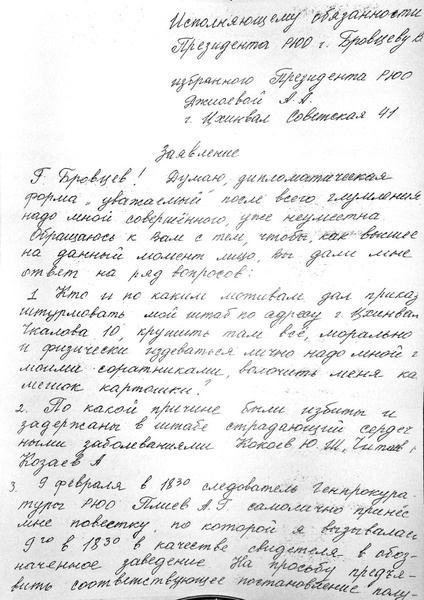 Исполняющему обязанности
Президента РЮО г. Бровцеву В
избранного Президента РЮО
Джиаевой А.А.
г. Цхинвал Советская 41
Заявление
Г. Бровцев! Думаю, дипломатическая
форма „уважаемый" после всего глумления
надо мной совершённого, уже неуместна.
Обращаюсь к Вам с тем, чтобы, как высшее
на данный момент лицо, Вы дали мне
ответ на ряд вопросов:
1 Кто и по каким мотивам дал приказ
штурмовать мой штаб по адресу г. Цхинвал
Чкалова 10, крушить там всё, морально
и физически издеваться лично надо мной и
моими соратниками, волочить меня ка
мешок картошки?
2. По какой причине были избиты и
задержаны в штабе страдающий сердеч
ными заболеваниями Кокоев Ю.Ш,
Козаев А
3. 9 февраля в 18 30 следователь Генпрокура-
туры РЮО Плиев А.Г самолично принёс
мне повестку, по которой я вызывалась
9 го в 18 30 в качестве свидетеля в обоз-
наченное заведение На просьбу предъя-
вить соответствующее постановление полу-